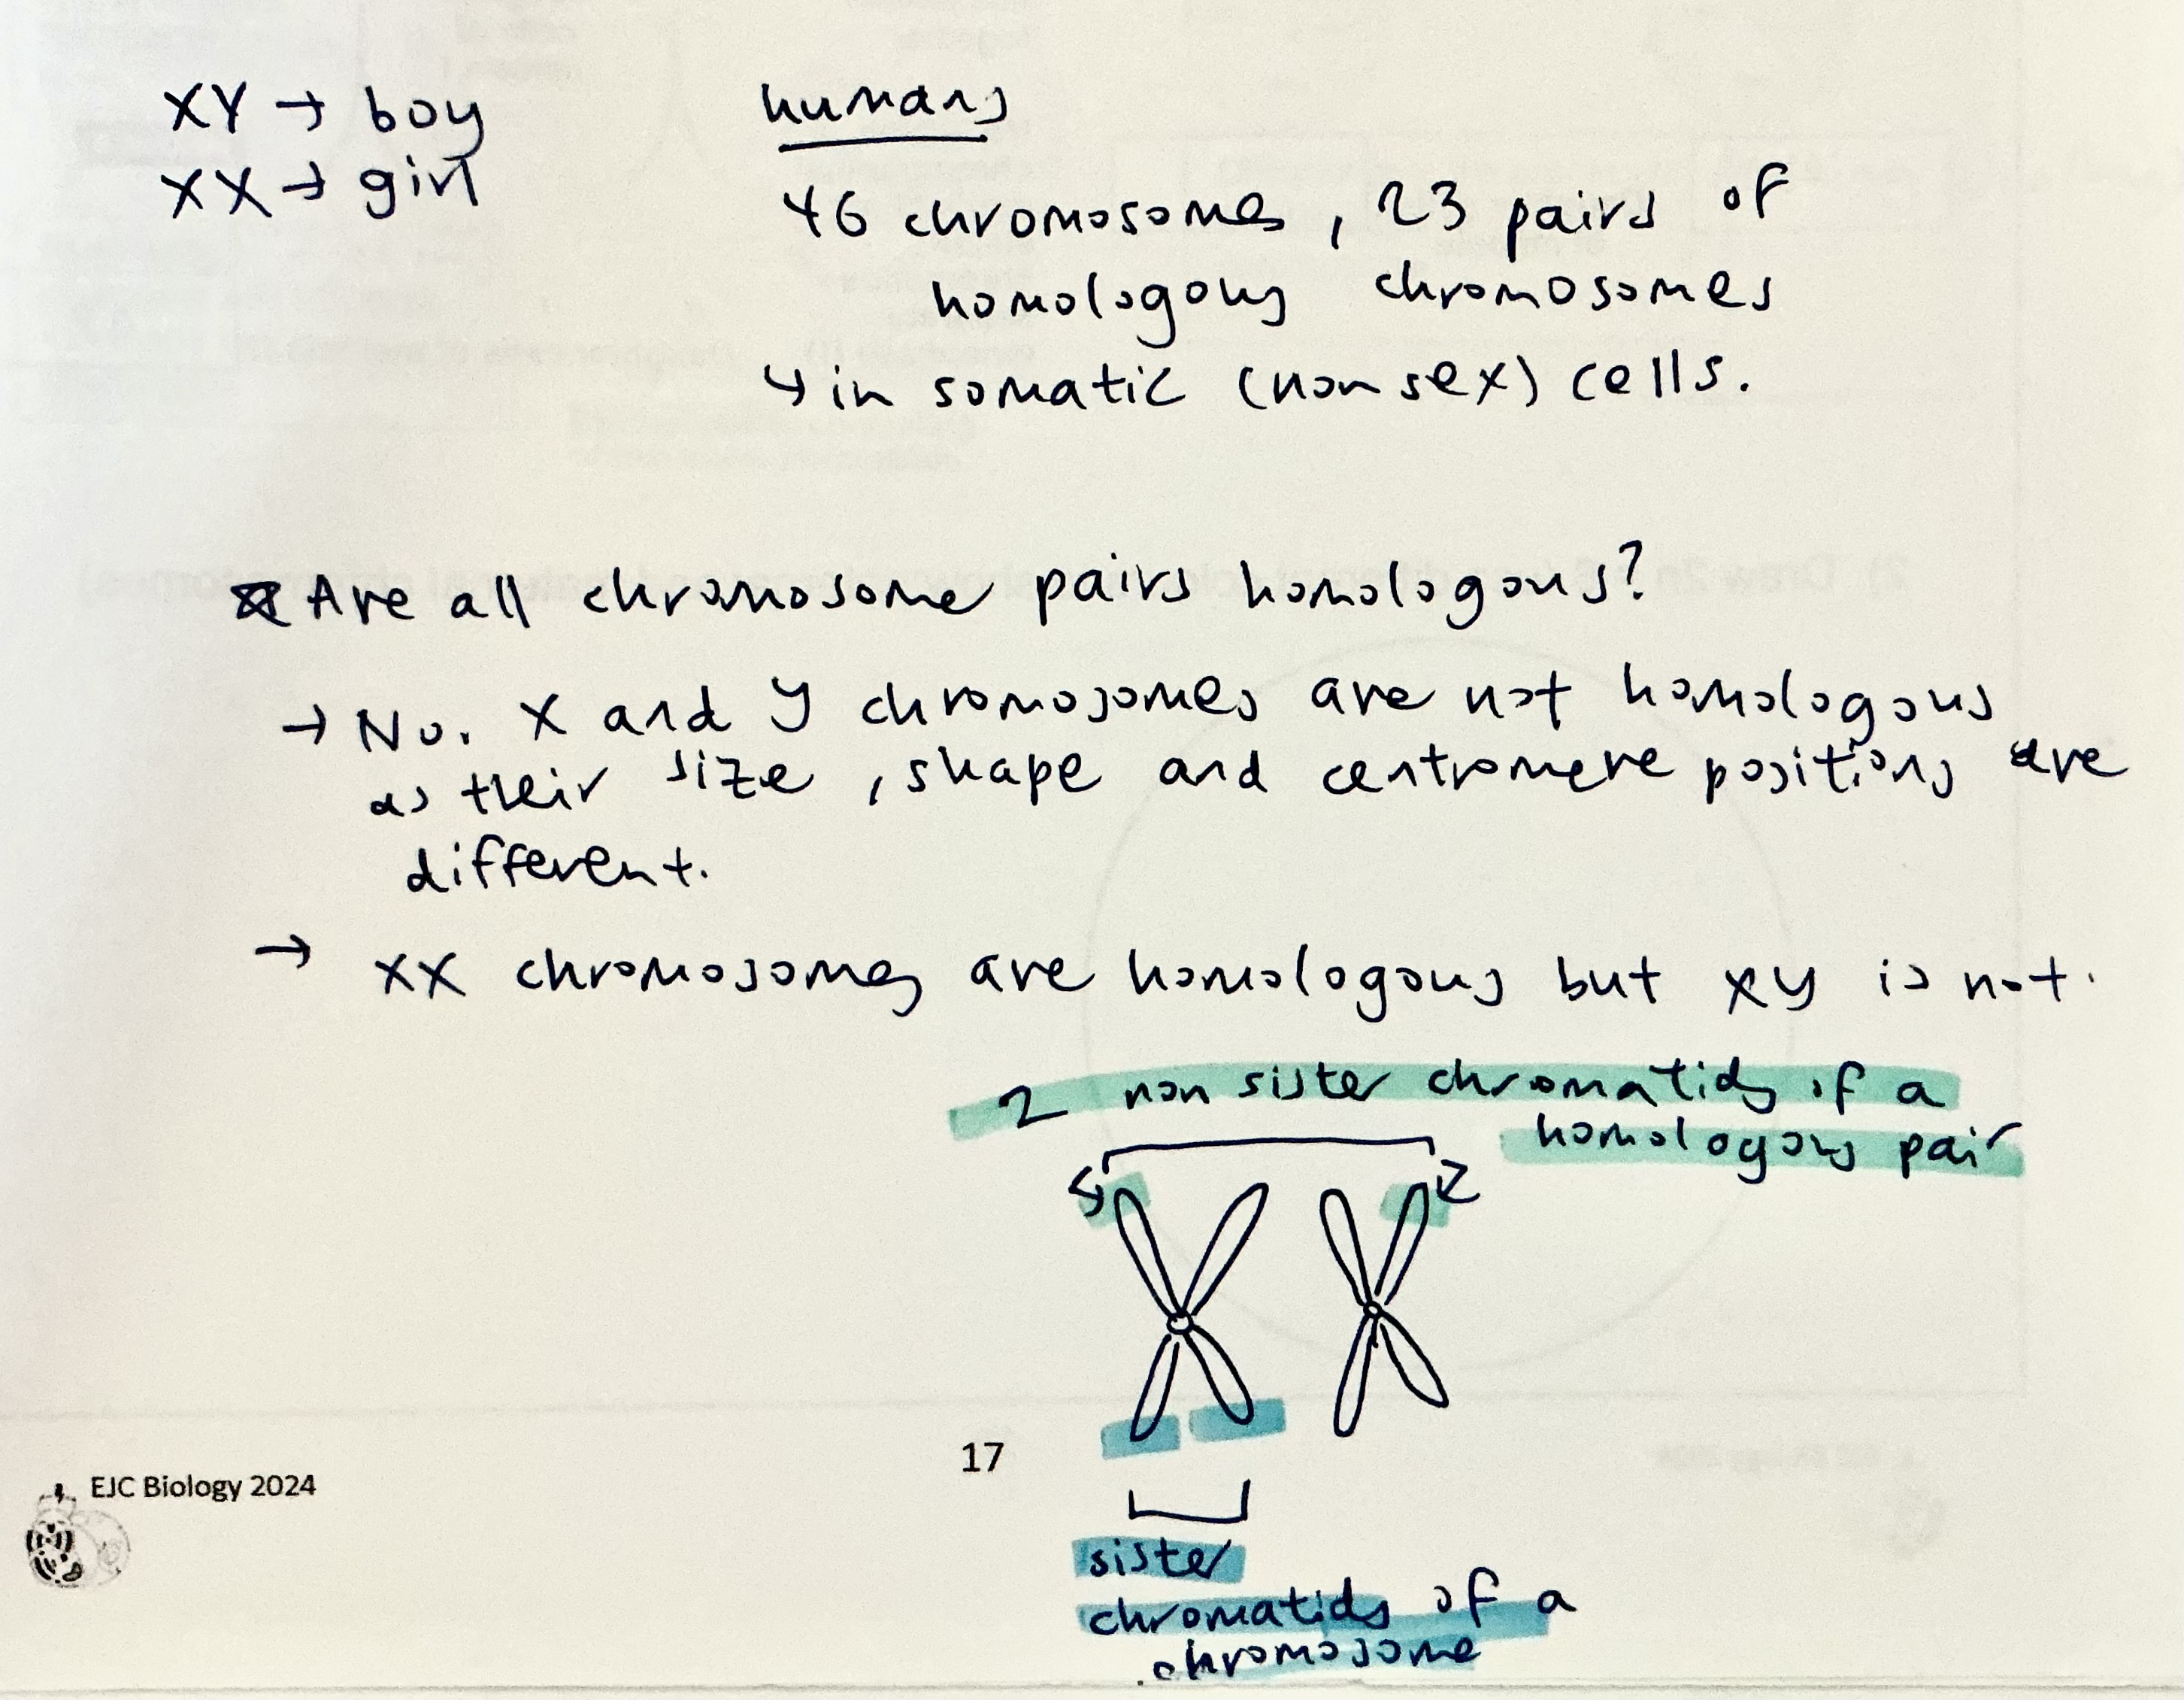 XY → boy
XX → girl
humans
46 chromosomes, 23 pairs of
homologous chromosomes
↳ in somatic (non sex) cells.
☆ Are all chromosome pairs homologous?
→ No. X and Y chromosomes are not homologous
as their size, shape and centromere positions are
different.
→ XX chromosomes are homologous but XY is not.
2 non sister chromatids of a
homologous pair
17
EJC Biology 2024
sister
chromatids of a
chromosome